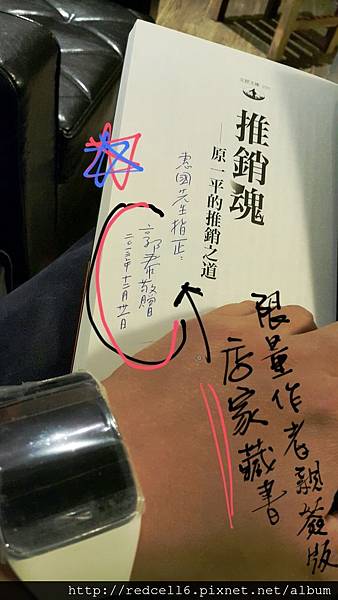 推銷魂
——原一平的推銷之道
惠國先生指正：
郭泰敬贈
月廿一日
限量作者親簽版
店家藏書
http://redcell6.pixnet.net/album